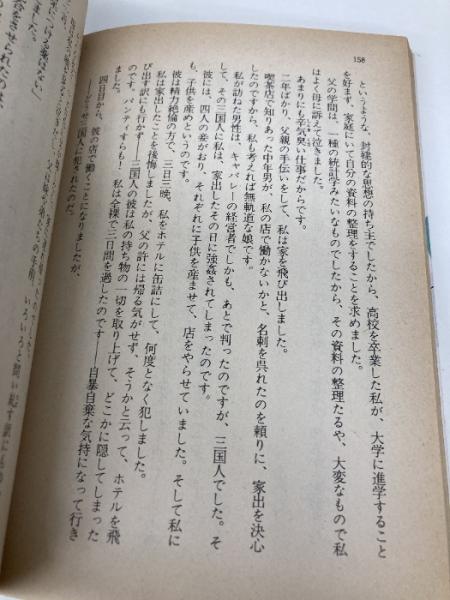 158
というような、封建的な思想の持ち主でしたから、高校を卒業した私が、大学に進学すること
を好まず、家庭にいて自分の資料の整理をすることを求めました。
父の学問は、一種の統計学みたいなものでしたから、その資料の整理たるや、大変なもので私
はよく母に訴えて泣きました。
あまりにも辛気臭い仕事だからです。
二年ばかり、父親の手伝いをして、私は家を飛び出しました。
喫茶店で知りあった中年男が、私の店で働かないかと、名刺を呉れたのを頼りに、家出を決心
したのですから、私も考えれば無軌道な娘です。
私が訪ねた男性は、キャバレーの経営者でしかも、あとで判ったのですが、三国人でした。そ
して、その三国人に私は、家出したその日に強姦されてしまったのです。
彼には、四人の妾がおり、それぞれに子供を産ませて、店をやらせていました。そして私に
も、子供を産め——というのです。
彼は精力絶倫の方で、三日三晩、私をホテルに缶詰にして、何度となく犯しました。
私は家出したことを後悔しましたが、父の許には帰る気がせず、そうかと云って、ホテルを飛
び出す訳にも行かず——三国人の彼は私の持ち物の一切を取り上げて、どこかに隠してしまった
のです。パンティすらも！　私は全裸で三日間を過したのです——自暴自棄な気持になって行き
ました。
——どうせ、三国人に犯されたのだ。
四日目から、彼の店で働くことになりましたが、